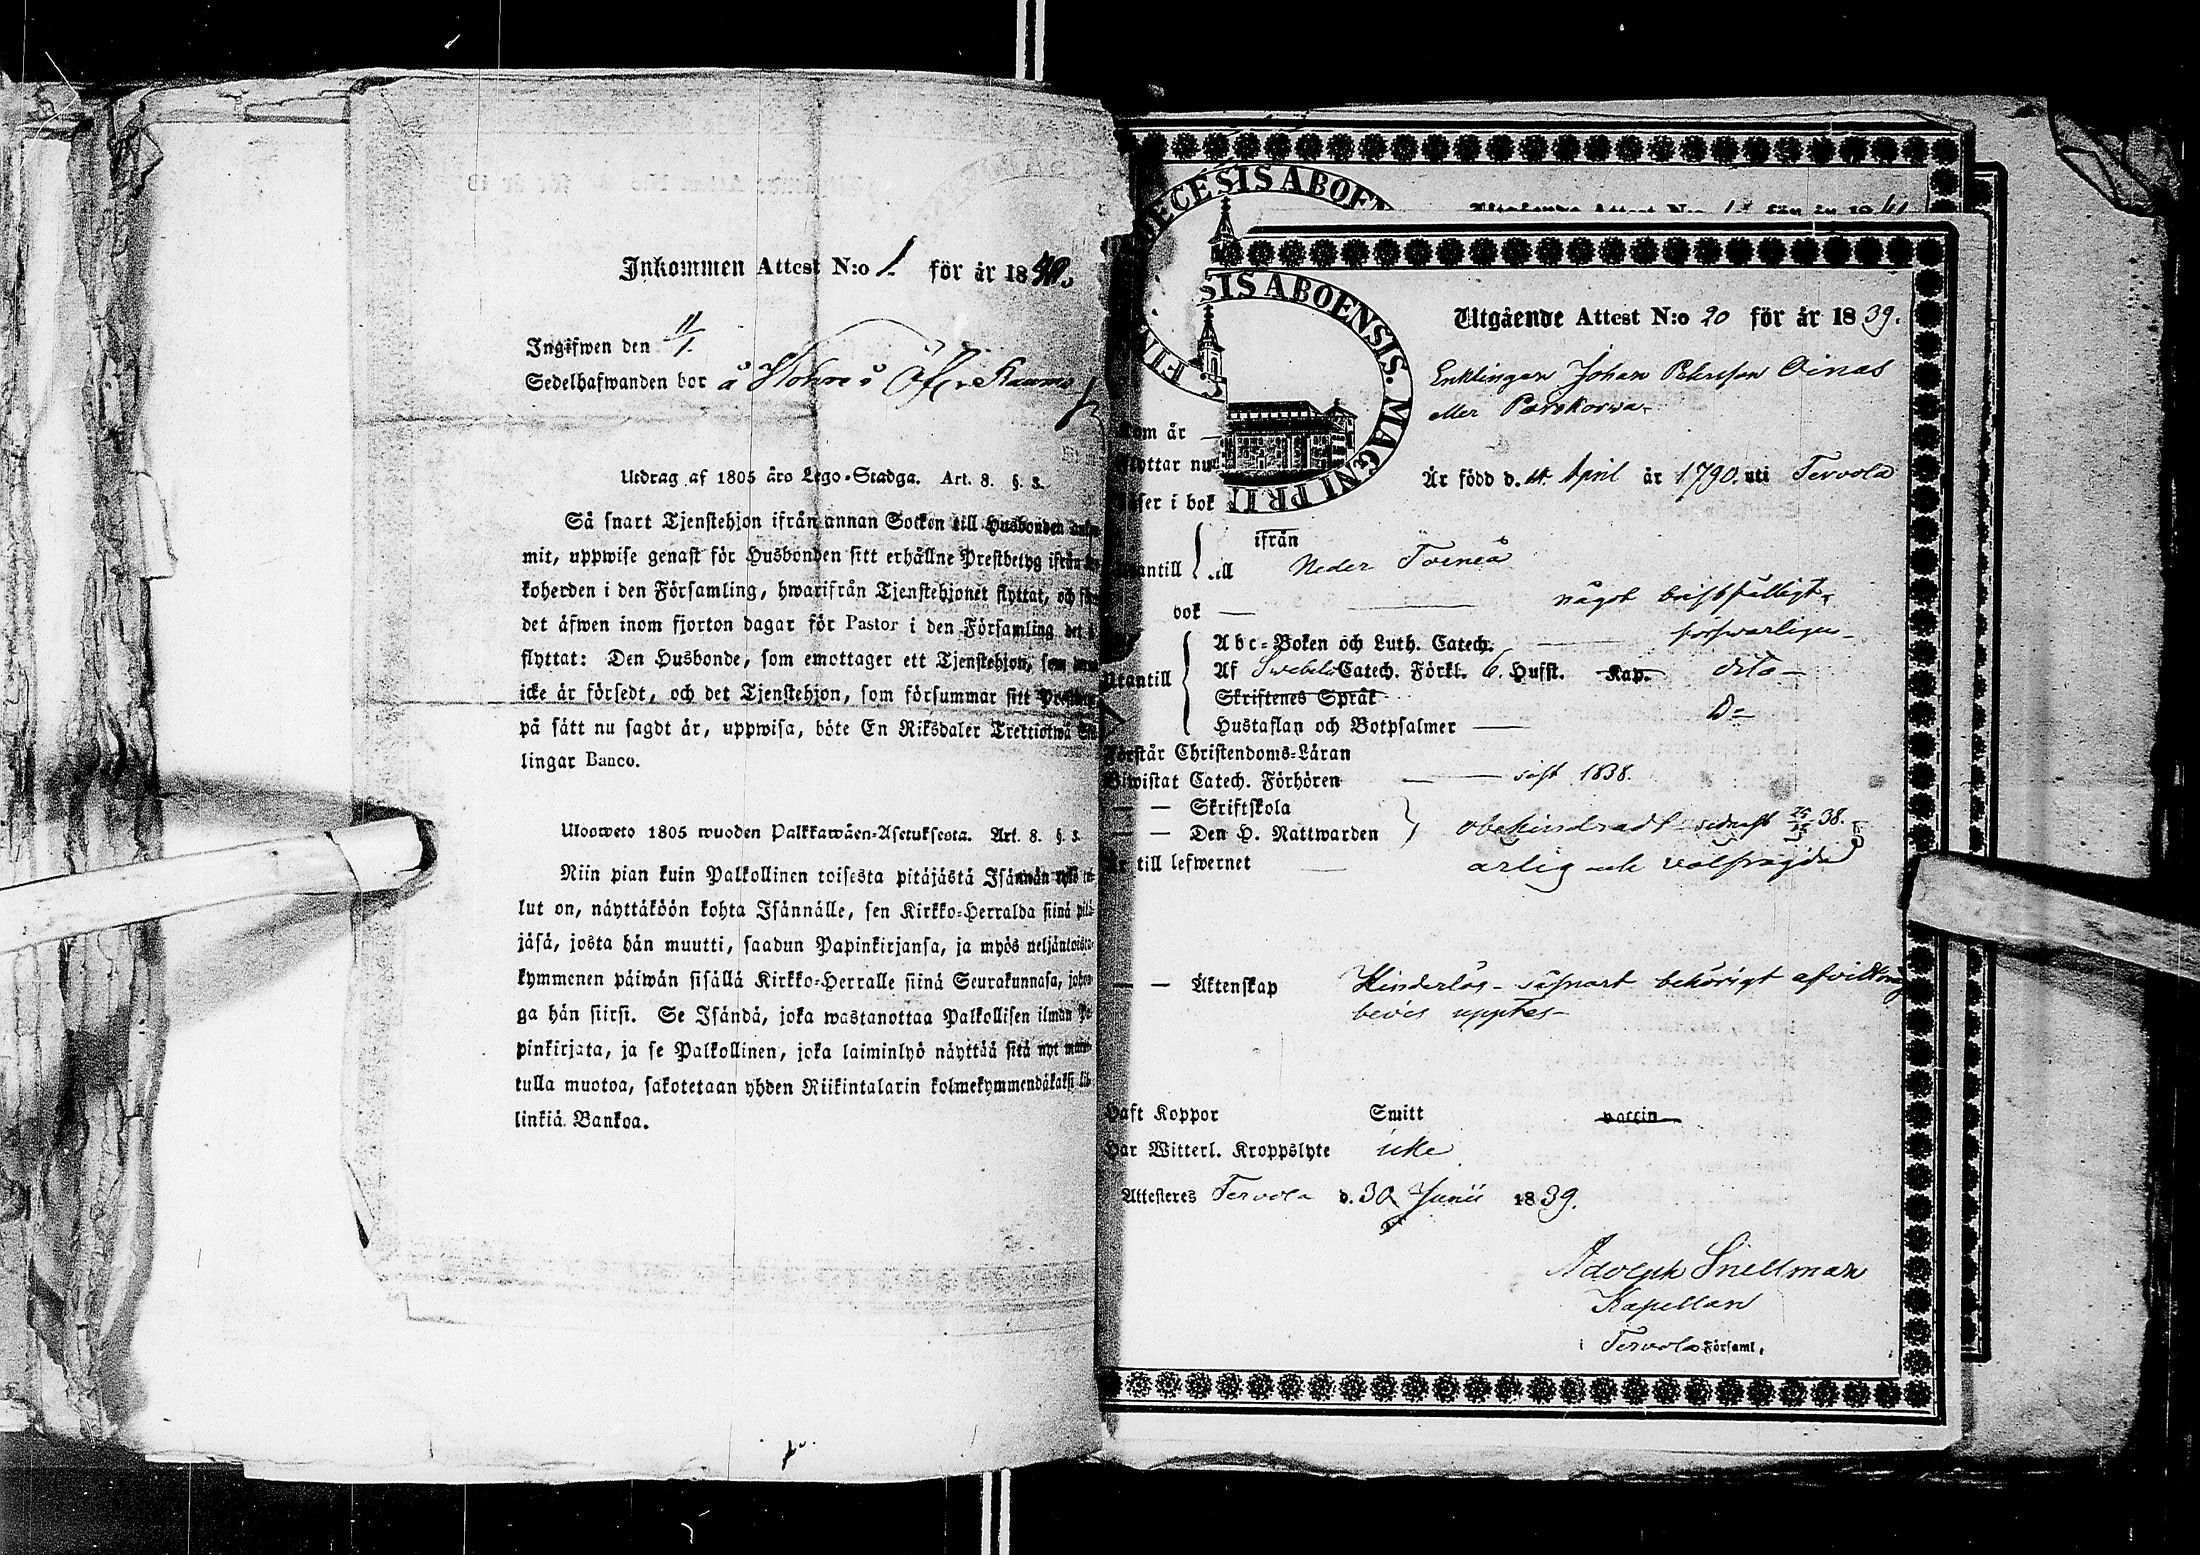 Inkommen Attest N:o 1. för år 1840.
Ingifwen den 11/1.
Sedelhafwanden bor å
Utdrag af 1805 års Lego-Stadga. Art. 8. §. 3.
Så snart Tjenstehjon ifrån annan Socken till Husbonden
mit, uppwise genast för Husbonden sitt erhållne Prestbetyg ifrån
koherden i den Församling, hwarifrån Tjenstehjonet flyttat, och
det äfwen inom fjorton dagar för Pastor i den Församling det
flyttat: Den Husbonde, som emottager ett Tjenstehjon, som
icke är försedt, och det Tjenstehjon, som försummar sitt
på sätt nu sagdt är, uppwisa, böte En Riksdaler Trettiotwå
lingar Banco.
Uloosweto 1805 wuoden Palkkawäen-Asetuksesta. Art. 8. §. 3.
Niin pian kuin Palkollinen toisesta pitäjästä Isännän
lut on, näyttäköön kohta Isännälle, sen Kirkko-Herralda siinä pitä-
jäsä, josta hän muutti, saadun Papinkirjansa, ja myös neljäntoista-
kymmenen päiwän sisällä Kirkko-Herralle siinä Seurakunnasa,
ga hän siirsi. Se Isändä, joka wastanottaa Palkollisen ilman Pa-
pinkirjata, ja se Palkollinen, joka laiminlyö näyttää sitä nyt
tulla muotoa, sakotetaan yhden Riikintalarin kolmekymmendäkaksi kil-
linkiä Bankoa.
ECESIS ABOE
SIS ABOENSIS. MAGNI PRI
FIN
Utgående Attest N:o 20 för år 1839.
Enklingen Johan Petersson Oinas
eller Parskorva
om år
lyttar nu
ser i bok
Är född d. 14 April år 1790. uti Tervola
ifrån
antill till Neder Torneå
bok — något bristfälligt
Abc-Boken och Luth. Catech. — försvarligen
utantill Af Svebeli Catech. Förkl. 6. Hufst. Kap. dito —
Skriftenes Språk
Hustaflan och Botpsalmer — Do
Förstår Christendoms-Läran
Biwistat Catech. Förhören — sist 1838.
— — Skriftskola
— — Den H. Nattwarden obehindradt senast 38.
Är till lefwernet — ärlig och välfrägdad
— — Äktenskap Hinderlös — såsnart behörigt afvittrings
bevis upptes
Haft Koppor Smitt vaccin
Har Witterl. Kroppslyte icke
Attesteres Tervola d. 30 Junii 1839.
Adolph Snellman
Kapellan
i Tervola Församl.